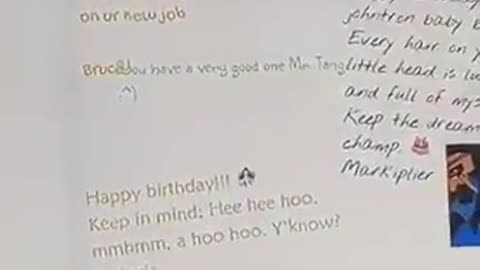 on or new job
Bruce! You have a very good one Mr. Tang
:^)
Happy birthday!!!
Keep in mind: Hee hee hoo.
mmhmm, a hoo hoo. Y'know?
johntron baby
Every hair on
little head is
and full of
Keep the
champ.
Markiplier